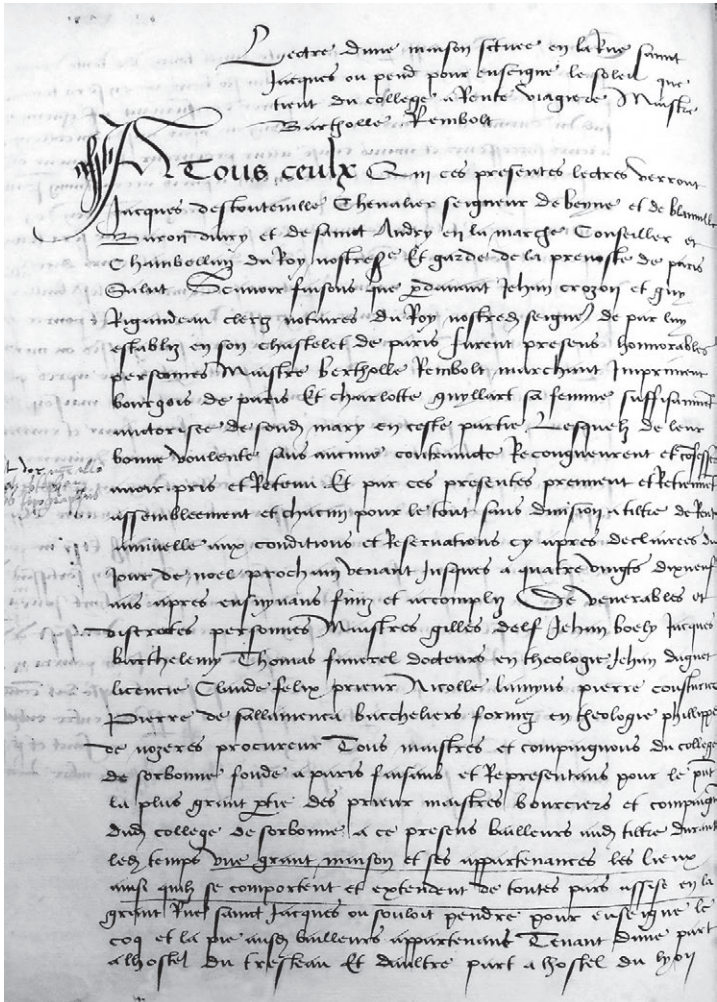 Lectre dune maison scituee en la Rue sainct
Jacques ou pend pour enseigne le soleil que
tient du college a Rente viagiere Maistre
Bartholle Rembolt
A Tous ceulx Qui ces presentes lectres verront
Jacques destouteville Chevalier seigneur de beyne et de blainville
Baron divry et de sainct Andry en la marche Conseiller et
Chambellan du Roy nostre sr Et garde de la prevoste de paris
Salut Scavoir faisons que pardavant Jehan crozon et guy
Rigaudeau clercs notaires du Roy nostred seigneur de par luy
establiz en son chastelet de paris furent presens honnorables
personnes Maistre bertholle Rembolt marchant Imprimeur
bourgois de paris Et charlotte guyllart sa femme suffisamment
auctorisee de sond mary en ceste partie Lesquelz de leur
bonne voulente sans aucune contraincte Recongneurent et confesserent
avoir pris et Retenu Et par ces presentes prennent et Retiennent
assembleement et chacun pour le tout sans division a tiltre de Rente
annuelle aux conditions et Reservations cy apres declairees du
Jour de noel prochain venant Jusques a quatre vingts dixneuf
ans apres ensuyvans finiz et accompliz De venerables et
discretes personnes Maistres gilles delf Jehan boely Jacques
barthelemy Thomas finerel docteurs en theologie Jehan daguet
licencie Claude felix prieur Nicolle pierre
Pierre de sallamenca baccheliers formez en theologie phillippe
de nozeres procureur Tous maistres et compaignons du college
de sorbonne fonde a paris faisans et Representans pour le pnt
la plus grant ptie des prieur maistres bourciers et compaign
dud college de sorbonne a ce presens bailleurs aud tiltre durant
led temps une grant maison et ses appartenances les lieux
ainsi quilz se comportent et extendent de toutes pars assise en la
grant Rue sainct Jacques ou souloit pendre pour enseigne le
coq et la pie ausd bailleurs appartenant Tenant dune part
a lhostel du tresteau Et daultre part a lhostel du lyon